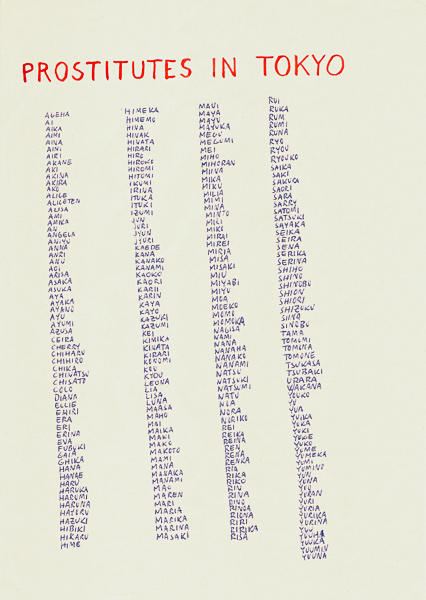 PROSTITUTES IN TOKYO
AGEHA
AI
AIKA
AIMI
AINA
AINI
AIRI
AKANE
AKI
AKINA
AKIRA
AKO
ALICE
ALICETEN
ALISA
AMI
AMIKA
AN
ANGELA
ANJYU
ANNA
ANRI
ANU
AOI
ARISA
ASAKA
ASUKA
AYA
AYAKA
AYANO
AYU
AYUMI
AZUSA
CEIRA
CHERRY
CHIHARU
CHIHIRO
CHIKA
CHINATSU
CHISATO
COCO
DIANA
ELLIE
EMIRI
ERA
ERI
ERINA
EVA
FUBUKI
GAIA
GHIKA
HANA
HANAE
HARU
HARUKA
HARUMI
HARUNA
HAYERU
HAZUKI
HIBIKI
HIKARU
HIME
HIMEKA
HIMEMO
HINA
HINAK
HINATA
HIRARI
HIRO
HIROKO
HIROMI
HITOMI
IKUMI
IRINA
ITUKA
ITUKI
IZUMI
JUN
JURI
JYUN
JYURI
KAEDE
KANA
KANAKO
KANAMI
KAOKO
KAORI
KARII
KARIN
KAYA
KAYO
KAZUKI
KAZUMI
KEI
KIMIKA
KINATA
KIRARI
KONOMI
KOU
KYOU
LEONA
LIA
LISA
LUNA
MAASA
MAHO
MAI
MAIKA
MAKI
MAKO
MAKOTO
MAMI
MANA
MANAKA
MANAMI
MAO
MAREN
MARI
MARIA
MARIKA
MARINA
MASAKI
MAUI
MAYA
MAYU
MAYUKA
MEGU
MEGUMI
MEI
MIHO
MIHORAN
MIINA
MIKA
MIKU
MILIA
MIMI
MINA
MINTO
MILI
MIKO
MIRAI
MIREI
MIRIA
MISA
MISAKI
MIU
MIYABI
MIYU
MOA
MOEKO
MOMO
MOMOKA
NAGISA
NAMI
NANA
NANAHA
NANAKO
NANAMI
NATSU
NATSUKI
NATSUMI
NATU
NIA
NORA
NORIKO
REI
REIKA
REINA
REN
RENA
RENKA
RIA
RIKA
RIKO
RIN
RINA
RINO
RINOA
RIONA
RIRI
RIRIKA
RISA
RUI
RUKA
RUM
RUMI
RUNA
RYO
RYOU
RYOUKO
SAIKA
SAKI
SAKURA
SAORI
SARA
SARRY
SATOMI
SATSUKI
SAYAKA
SEIKA
SEIRA
SENA
SERIKA
SERINA
SHIHO
SHINO
SHINOBU
SHION
SHIORI
SHIZUKU
SIINO
SINOBU
TAMA
TOMOMI
TOMONA
TOMONE
TSUKASA
TSUBAKI
URARA
WAKANA
YOUKO
YU
YUA
YUIKA
YUKA
YUKI
YUKIE
YUKO
YUME
YUMEKA
YUMI
YUMINO
YUN
YUNA
YUO
YURAN
YURI
YURIA
YURIKA
YURINA
YUU
YUUHA
YUUKA
YUUMIN
YUUNA